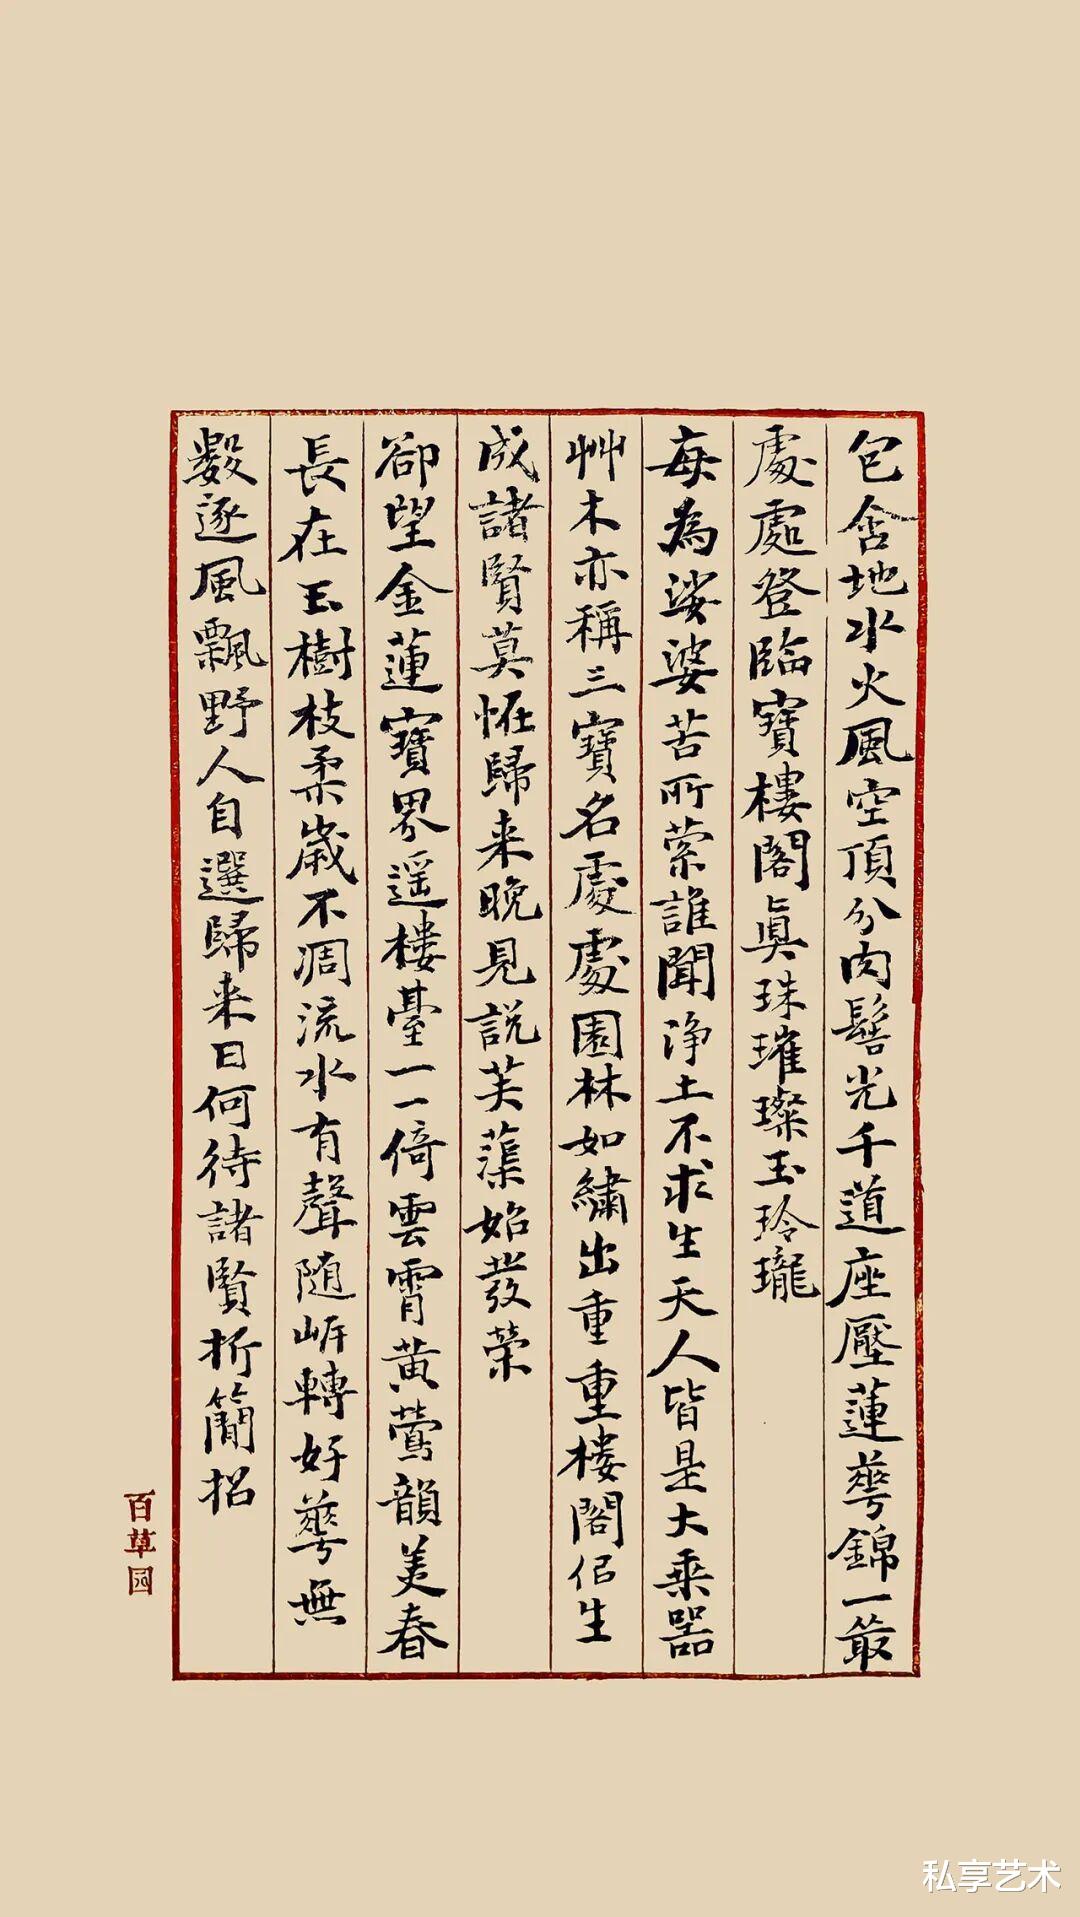 包含地水火風空頂分肉髻光千道座壓蓮華錦一叢
處處登臨寶樓閣真珠璀璨玉玲瓏
每為娑婆苦所縈誰聞淨土不求生天人皆是大乘器
艸木亦稱三寶名處處園林如繡出重重樓閣侣生
成諸賢莫恠歸来晚見説芙蕖始發榮
卻望金蓮寶界遥樓臺一一倚雲霄黄鶯韻美春
長在玉樹枝柔歲不凋流水有聲随岍轉好華無
數逐風飄野人自選歸来日何待諸賢折簡招
百草园
私享艺术